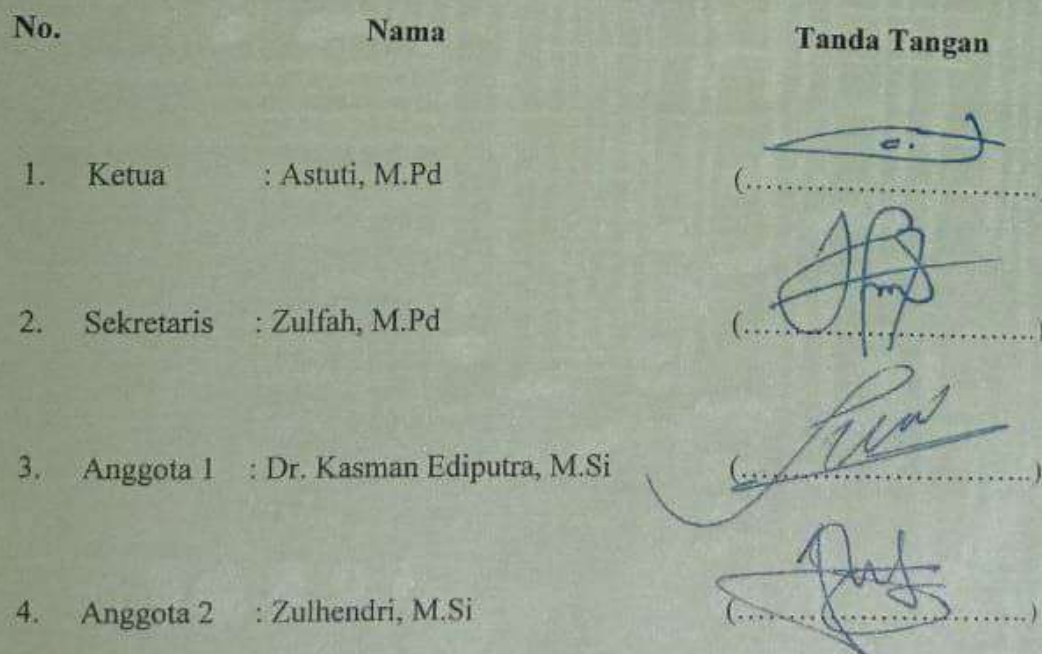 No. Nama Tanda Tangan
1. Ketua : Astuti, M.Pd (..............................
2. Sekretaris : Zulfah, M.Pd (..............................)
3. Anggota 1 : Dr. Kasman Ediputra, M.Si (..............................)
4. Anggota 2 : Zulhendri, M.Si (..............................)